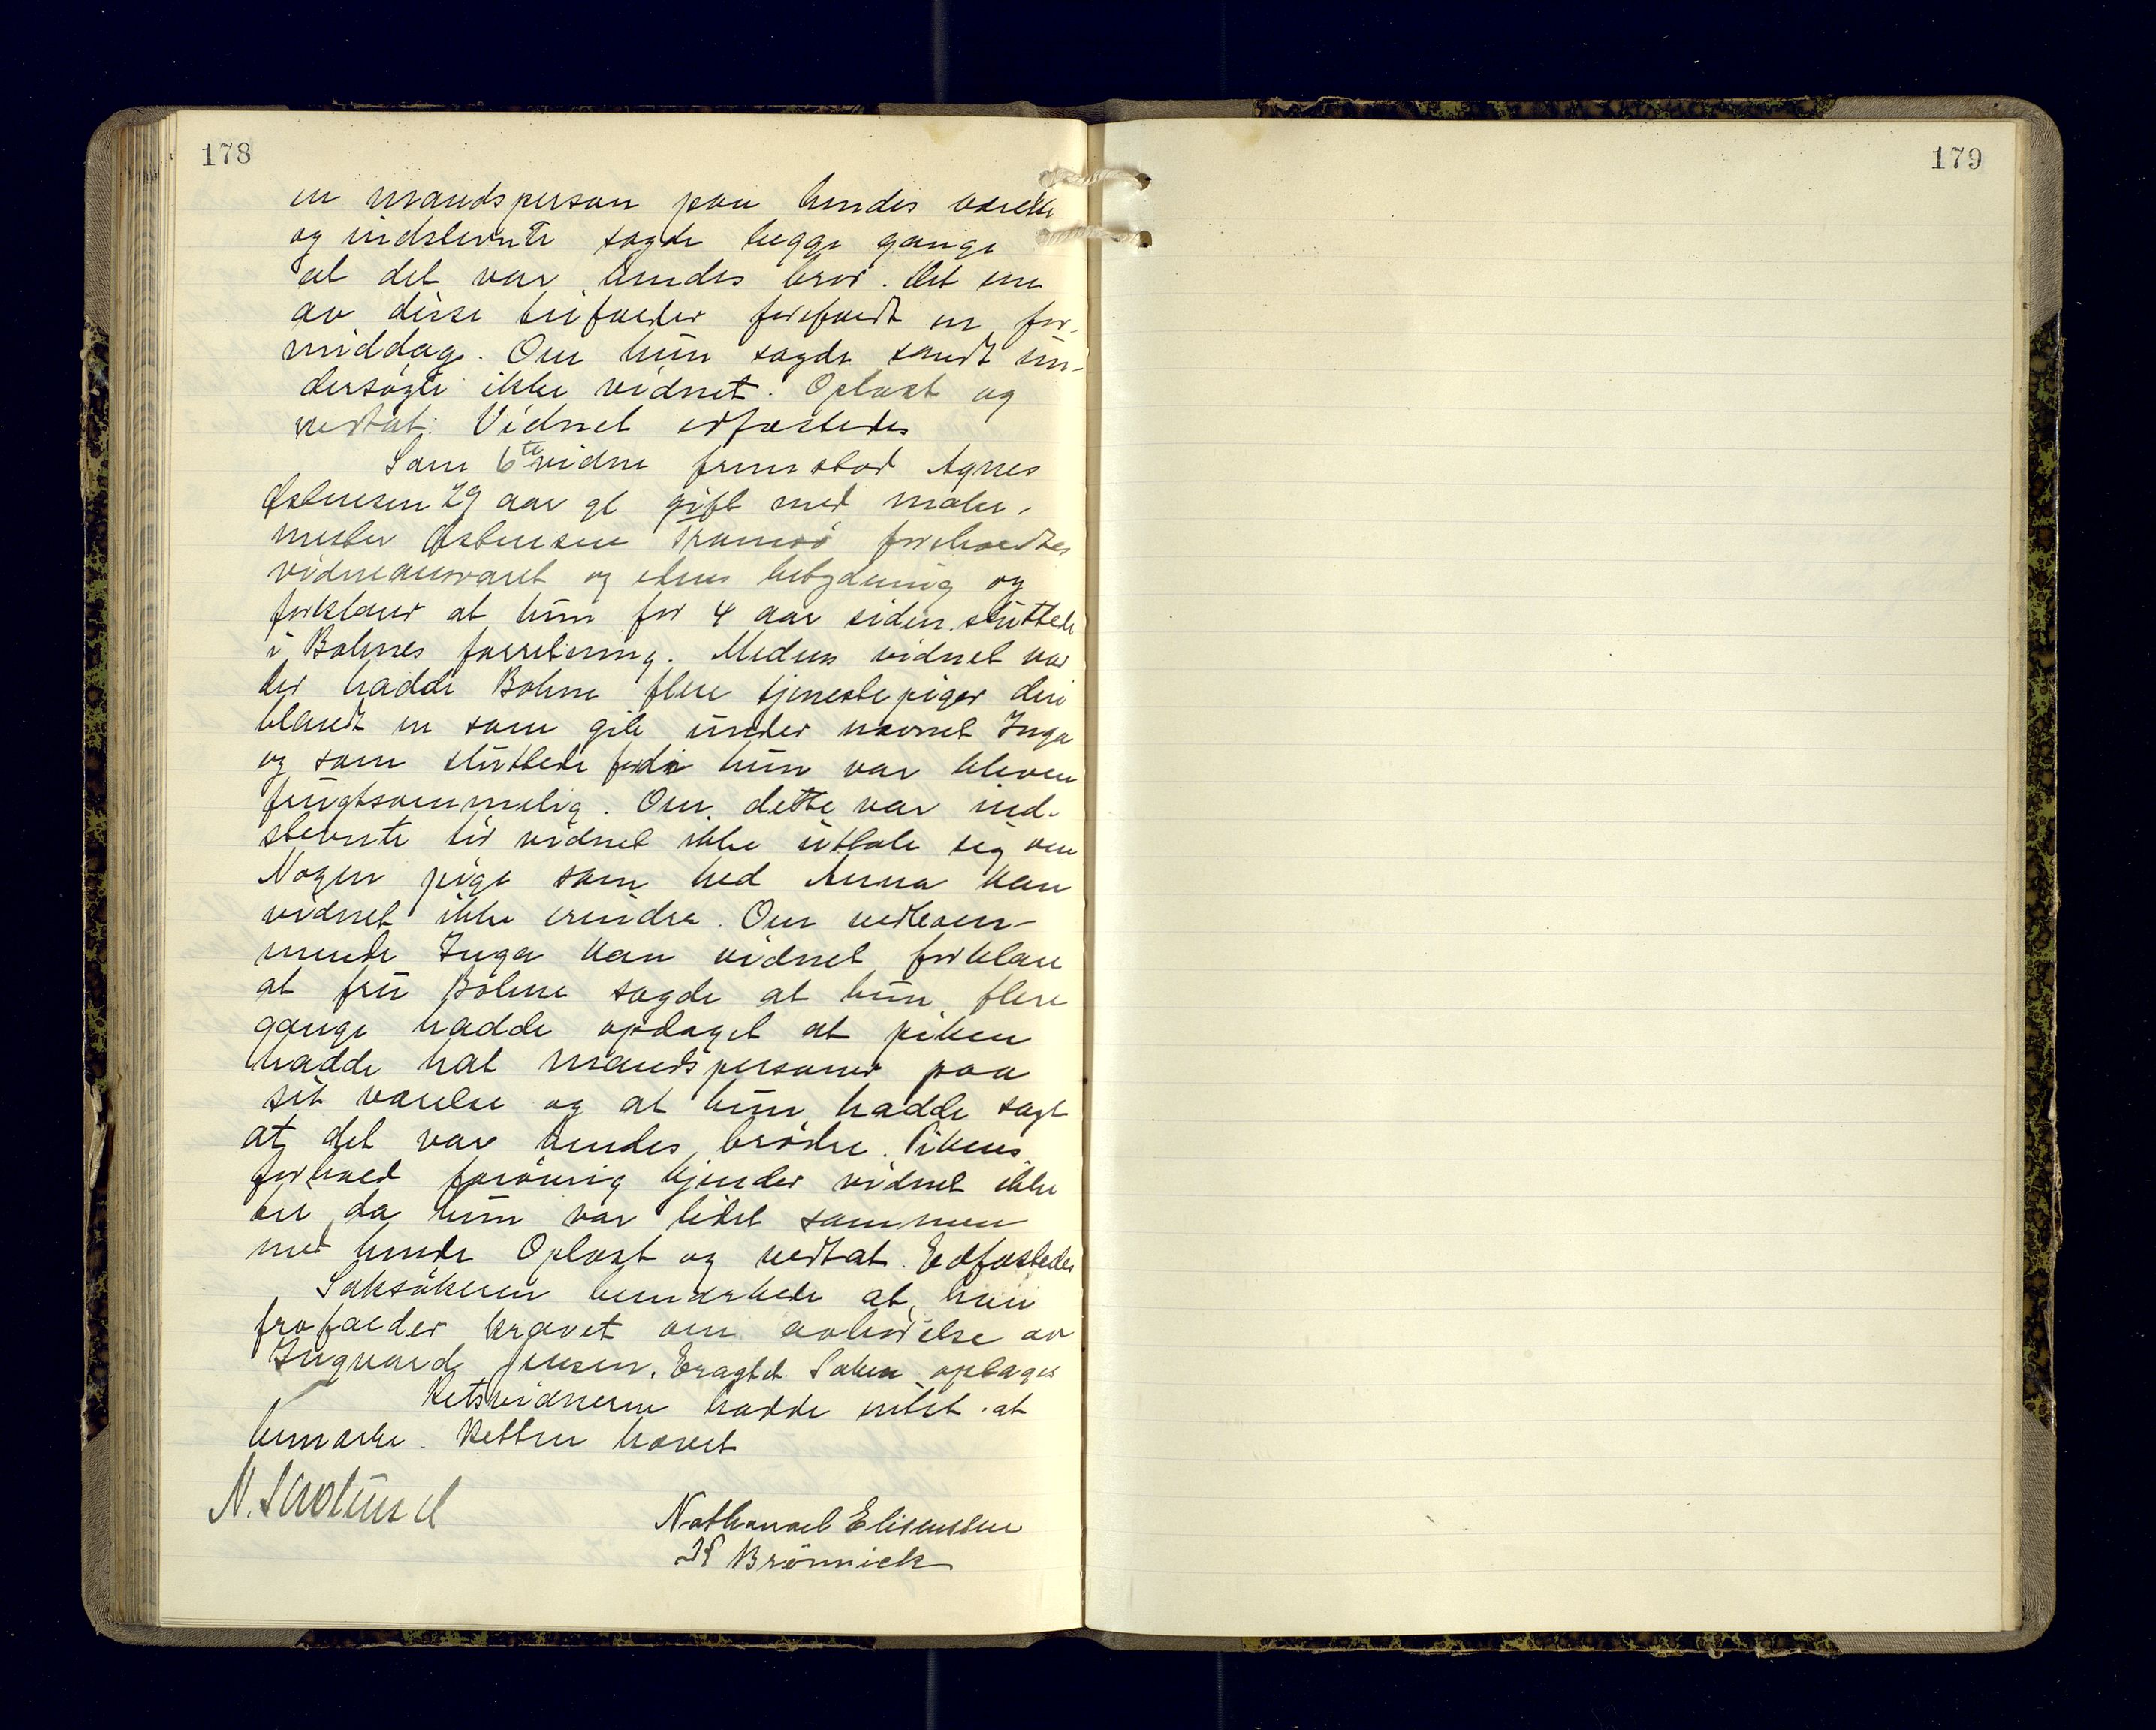 178
en mandsperson paa hendes værelse
og indstevnte sagde begge gange
at det var hendes bror. Det ene
av disse tilfælder forefaldt en for-
middag. Om hun sagde sandt un-
dersøgte ikke vidnet. Oplæst og
vedtat. Vidnet edfæstedes
Som 6te vidne fremstod Agnes
Østensen 29 aar gl gift med maler-
mester Østensen Tromsö foreholdtes
vidneansvaret og edens betydning og
forklarer at hun for 4 aar siden sluttede
i Bohnes forretning. Medens vidnet var
der hadde Bohne flere tjenestepiger deri
blandt en som gik under navnet Inga
og som sluttede fordi hun var bleven
frugtsommelig. Om dette var ind-
stevnte tør vidnet ikke uttale sig om
Nogen pige som hed Anna kan
vidnet ikke erindre. Om vedkom-
mende Inga kan vidnet forklare
at fru Bohne sagde at hun flere
gange hadde opdaget at piken
hadde hat mandspersoner paa
sit værelse og at hun hadde sagt
at det var hendes brödre. Pikens
forhold forövrig kjender vidnet ikke
til da hun var lidet sammen
med hende Oplæst og vedtat. Edfæstedes
Saksökeren bemerkede at han
frafalder kravet om avhörelse av
Ingvard Jensen. Eragtet Saken optages
Retsvidnerne hadde intet at
bemerke. Retten hævet
N.
Nathanael Elisenssen
Brönnick
179